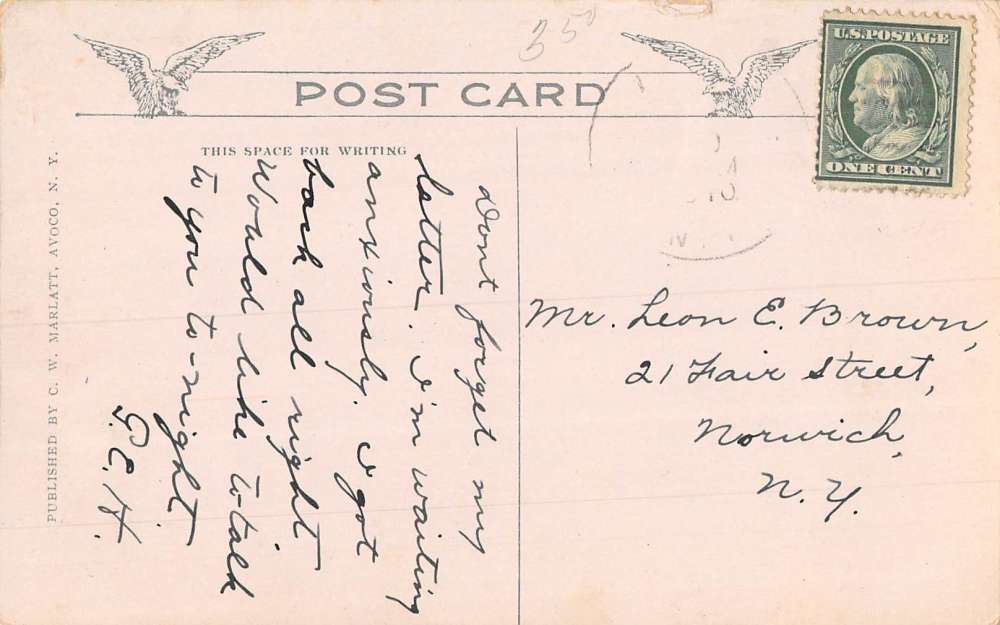 350
U.S. POSTAGE
ONE CENT
POST CARD
THIS SPACE FOR WRITING
PUBLISHED BY C. W. MARLATT, AVOCO, N. Y.
Dont forget my
letter. I'm waiting
anxiously. I got
back all right
Would like to talk
to you to-night
G.E.H.
Mr. Leon E. Brown,
21 Fair Street,
Norwich,
N.Y.